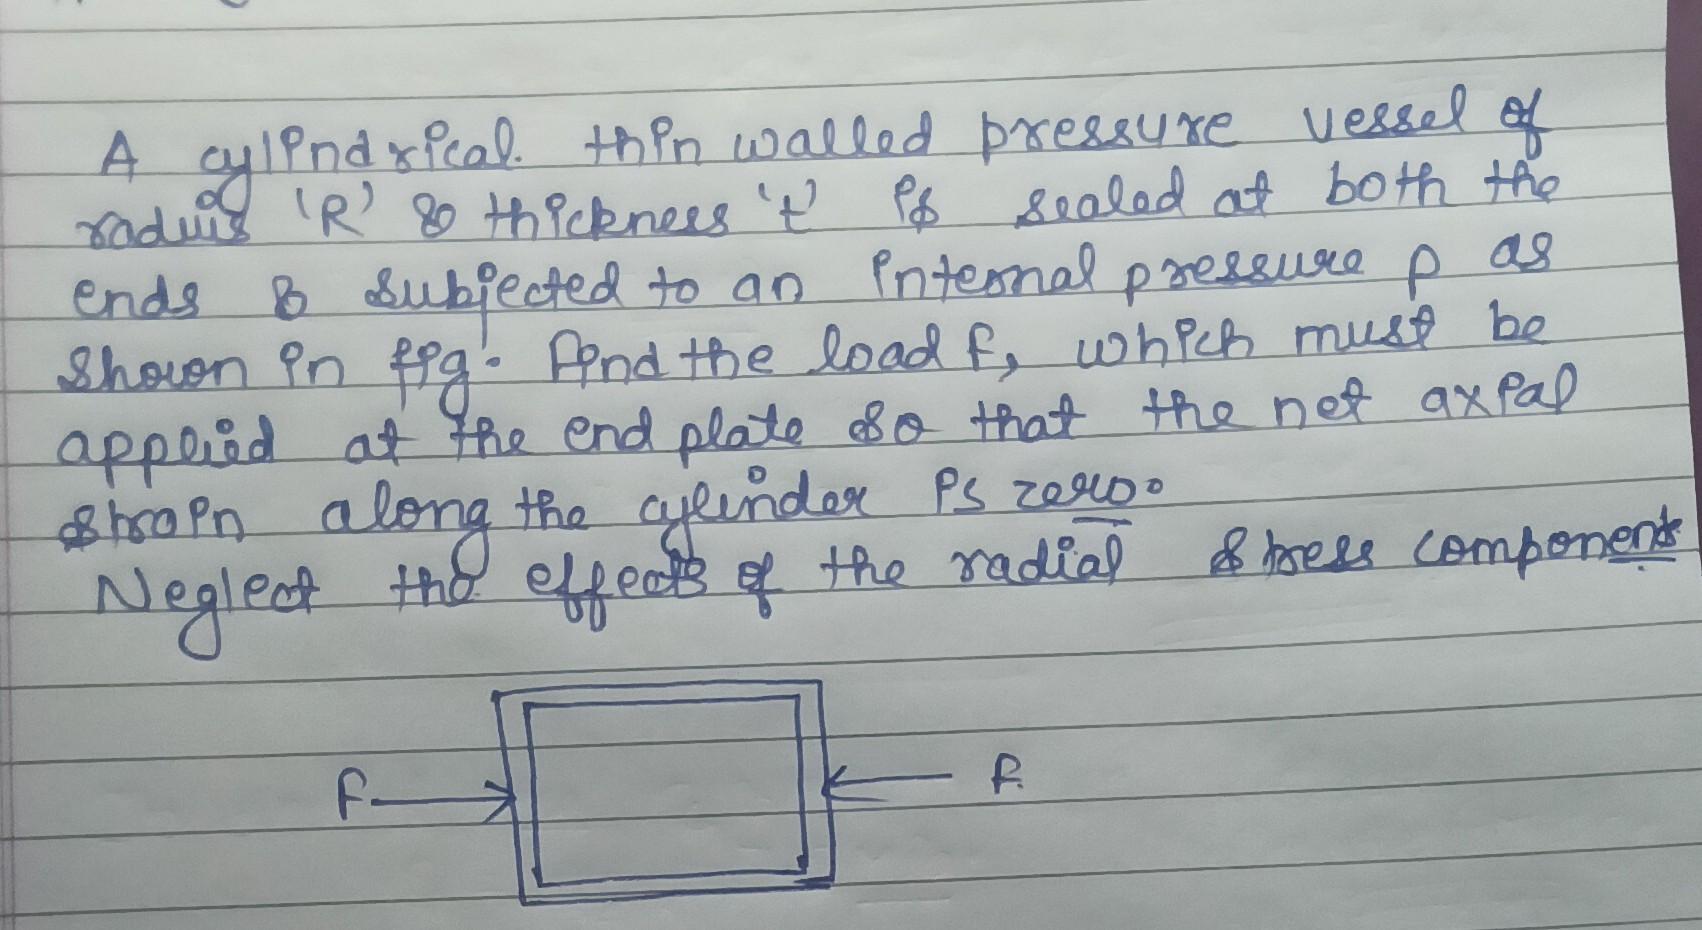 A cylindrical thin walled pressure vessel of
radius 'R' & thickness 't' is sealed at both the
ends & subjected to an internal pressure p as
shown in fig. Find the load F, which must be
applied at the end plate so that the net axial
strain along the cylinder is zero.
Neglect the effects of the radial stress component
F F